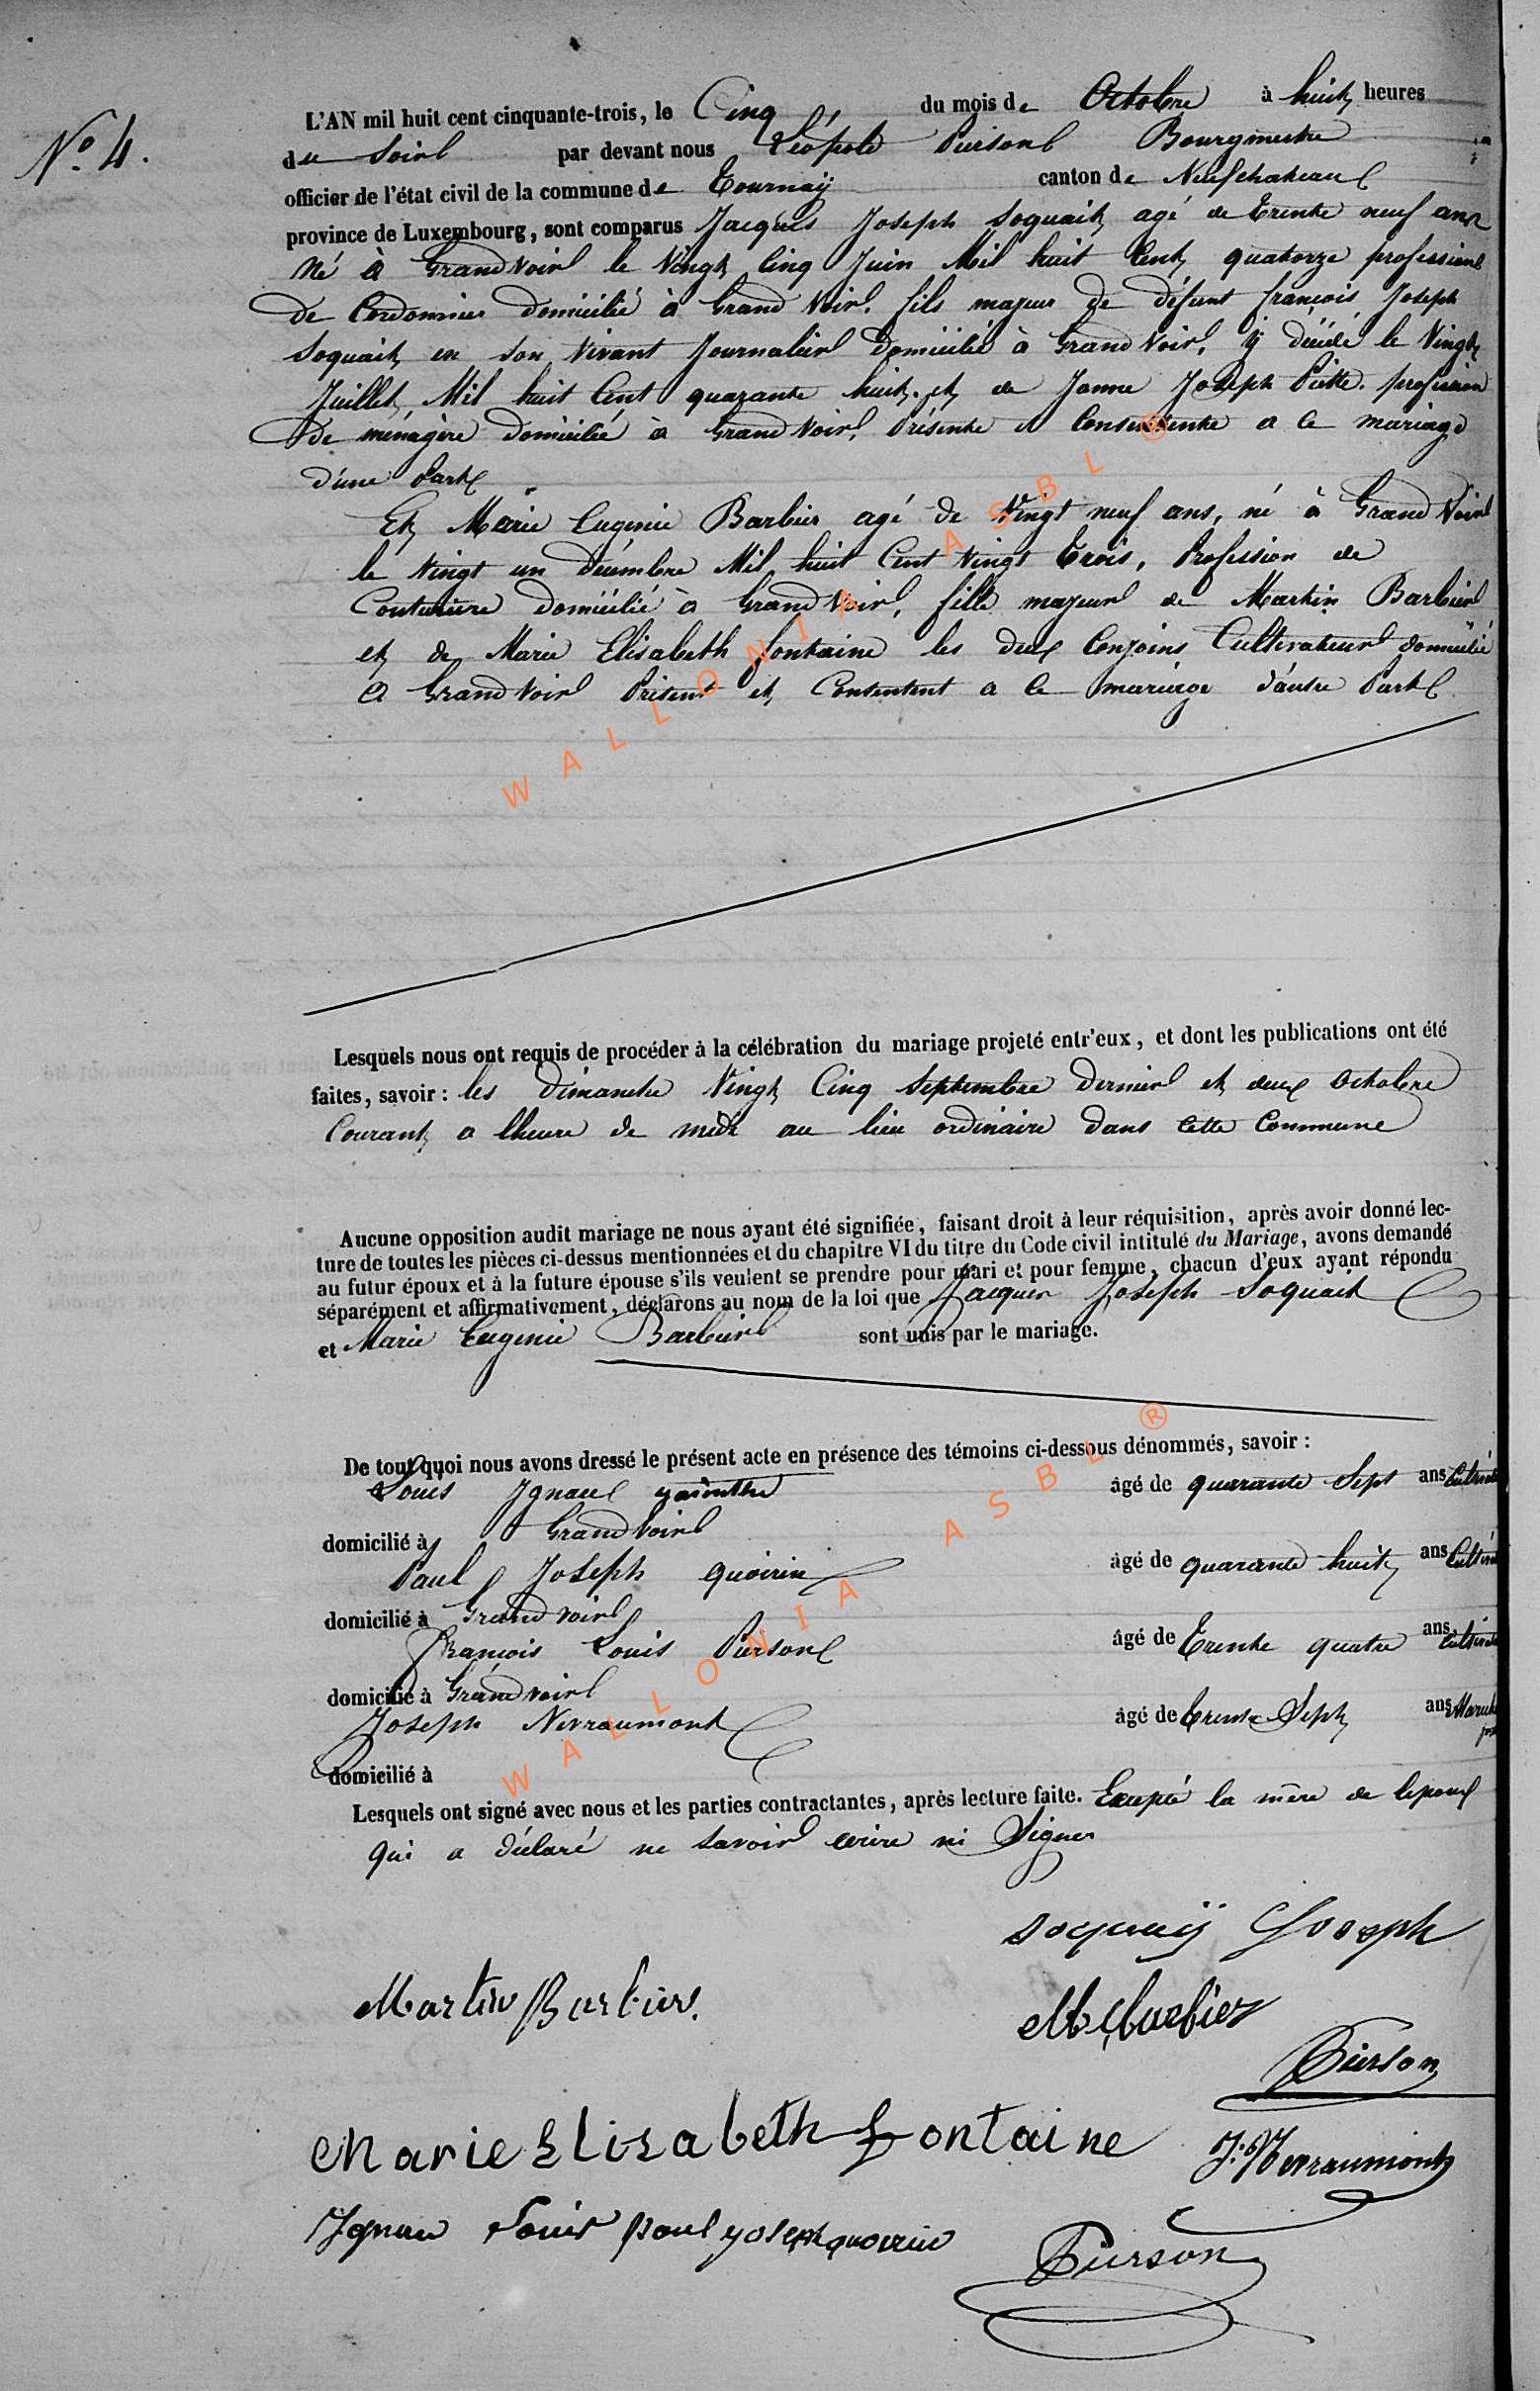 N° 4.
L'AN mil huit cent cinquante-trois, le Cinq du mois de Octobre à huit heures
du Soir par devant nous Léopold Pierson Bourgmestre
officier de l'état civil de la commune de Tournay canton de Neufchateau
province de Luxembourg, sont comparus Jacques Joseph Soquait agé de Trente neuf ans
Né à Grandvoir le Vingt Cinq Juin Mil huit Cent quatorze profession
de Cordonnier domicilié à Grand Voir, fils majeur de défunt françois Joseph
Soquait en son Vivant Journalier domicilié à Grand Voir, y décédé le Vingt
Juillet Mil huit Cent quarante huit. et de Janne Joseph Piette. profession
de ménagère domiciliée à Grand Voir, Présente et Consentente a ce mariage
d'une Part
Et Marie Eugenie Barbier agé de Vingt neuf ans, né à Grand Voir
le Vingt un Décembre Mil huit Cent Vingt Trois, Profession de
Couturière domicilié à Grand Voir, fille majeur de Martin Barbier
et de Marie Elisabeth fontaine les deux Conjoins Cultivateur domicilié
a Grand Voir Présent et Consentent a ce mariage d'autre Part
Lesquels nous ont requis de procéder à la célébration du mariage projeté entr'eux, et dont les publications ont été
faites, savoir : les dimanche Vingt Cinq Septembre Dernier et deux Octobre
Courant a lheure de midi au lieu ordinaire dans cette Commune
Aucune opposition audit mariage ne nous ayant été signifiée, faisant droit à leur réquisition, après avoir donné lec-
ture de toutes les pièces ci-dessus mentionnées et du chapitre VI du titre du Code civil intitulé du Mariage, avons demandé
au futur époux et à la future épouse s'ils veulent se prendre pour mari et pour femme, chacun d'eux ayant répondu
séparément et affirmativement, déclarons au nom de la loi que Jacques Joseph Soquait
et Marie Eugenie Barbier sont unis par le mariage.
De tout quoi nous avons dressé le présent acte en présence des témoins ci-dessous dénommés, savoir :
Louis Ignace âgé de quarante Sept ans
domicilié à Grandvoir
Paul Joseph quoirin âgé de quarante huit ans
domicilié à Grandvoir
François Louis Pierson âgé de Trente quatre ans
domicilié à Grandvoir
Joseph Nevraumont âgé de Trente Sept ans
domicilié à
Lesquels ont signé avec nous et les parties contractantes, après lecture faite. Excepté la mère de lepoux
qui a déclaré ne Savoir ecrire ni Signer
soquaij Joseph
Martin Barbier.
M E barbier
Pierson
Marie Elisabeth fontaine
J. Nevraumont
Ignace Louis paul yoseph quoirin
Pierson
WALLONIA ASBL ®
WALLONIA ASBL ®